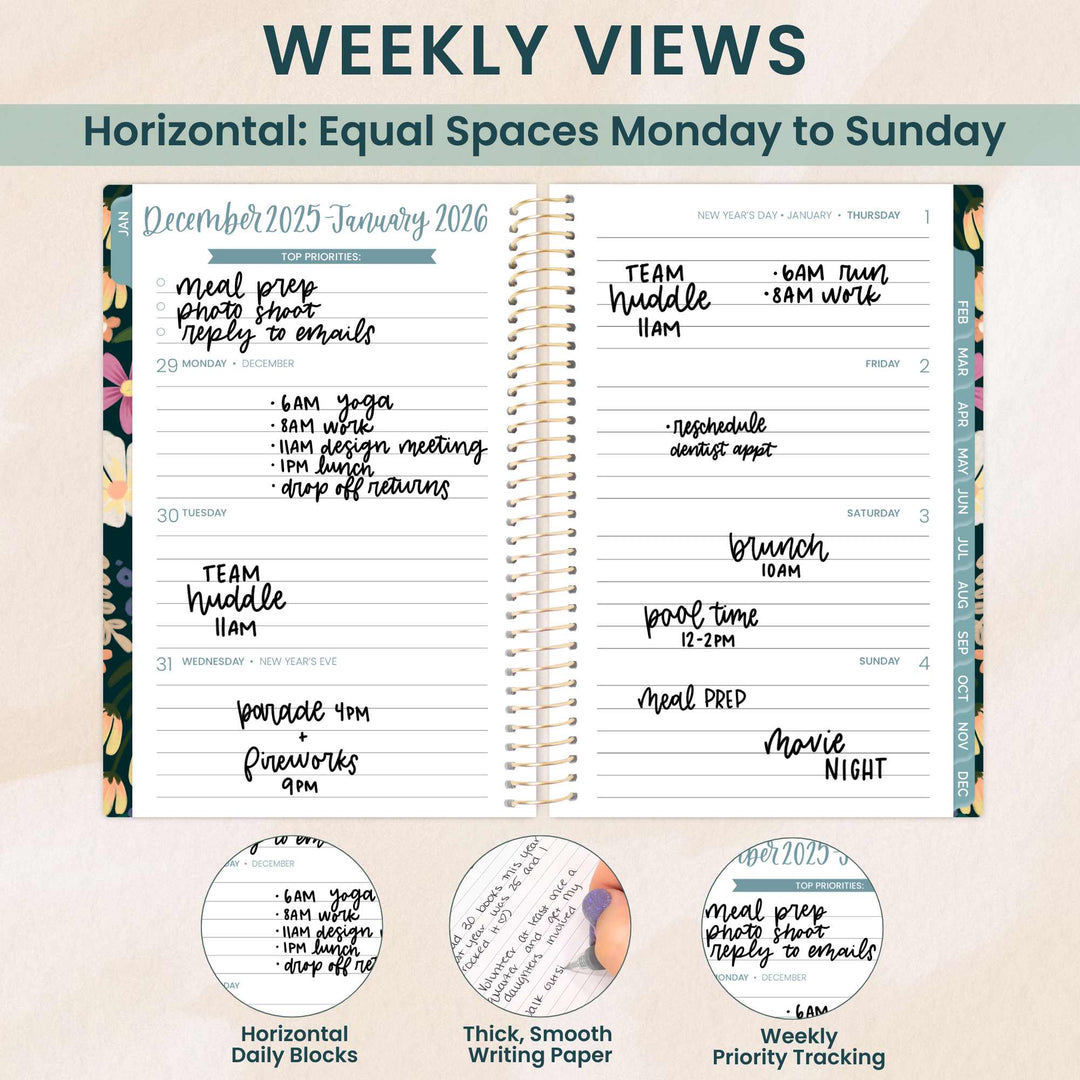 WEEKLY VIEWS
Horizontal: Equal Spaces Monday to Sunday
JAN
December 2025-January 2026
TOP PRIORITIES:
meal prep
photo shoot
reply to emails
29 MONDAY • DECEMBER
• 6AM yoga
• 8AM work
• 11AM design meeting
• 1PM lunch
• drop off returns
30 TUESDAY
TEAM
huddle
11AM
31 WEDNESDAY • NEW YEAR'S EVE
parade 4PM
+
fireworks
9PM
NEW YEAR'S DAY • JANUARY • THURSDAY 1
TEAM
huddle
11AM
• 6AM run
• 8AM work
FRIDAY 2
• reschedule
dentist appt
SATURDAY 3
brunch
10AM
pool time
12-2PM
SUNDAY 4
meal PREP
movie
NIGHT
FEB
MAR
APR
MAY
JUN
JUL
AUG
SEP
OCT
NOV
DEC
to em
DAY • DECEMBER
• 6AM yoga
• 8AM work
• 11AM design
• 1PM lunch
• drop off ret
DAY
Horizontal
Daily Blocks
30 books this year
year was 25 and I
rocked it
Volunteer at least once a
quarter and get my
daughters involved
Thick, Smooth
Writing Paper
ber 2025-J
TOP PRIORITIES:
meal prep
photo shoot
reply to emails
MONDAY • DECEMBER
• 6AM
Weekly
Priority Tracking